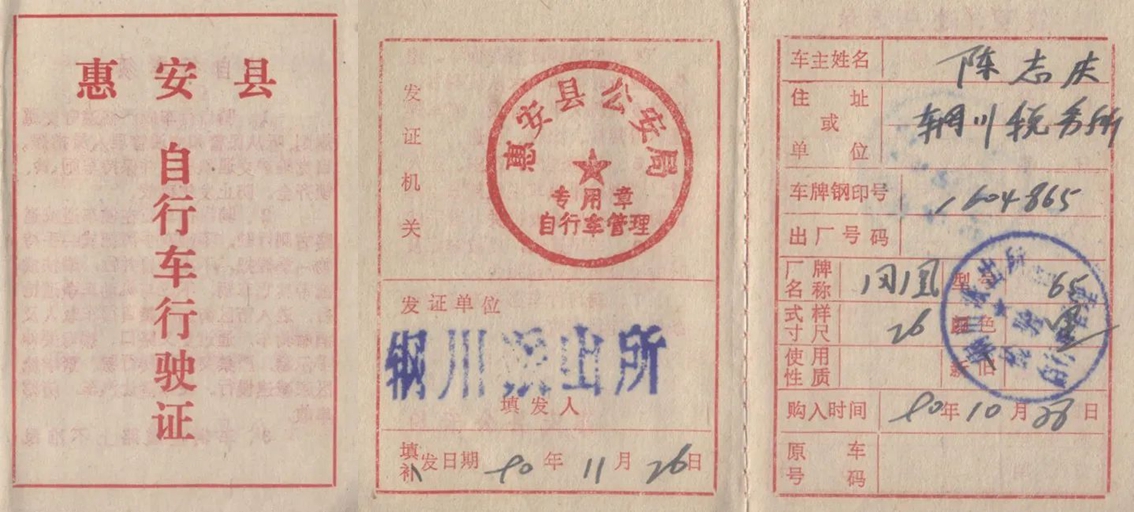 惠安县
自行车行驶证
发证机关
惠安县公安局
专用章
自行车管理
发证单位
辋川派出所
填发人
填补发日期 90年11月26日
车主姓名 陈志庆
住址或单位 辋川税务所
车牌钢印号 1604865
出厂号码
厂牌名称 凤凰 型号 65
式样尺寸 26 颜色
使用性质 新旧
购入时间 90年10月28日
原车号码